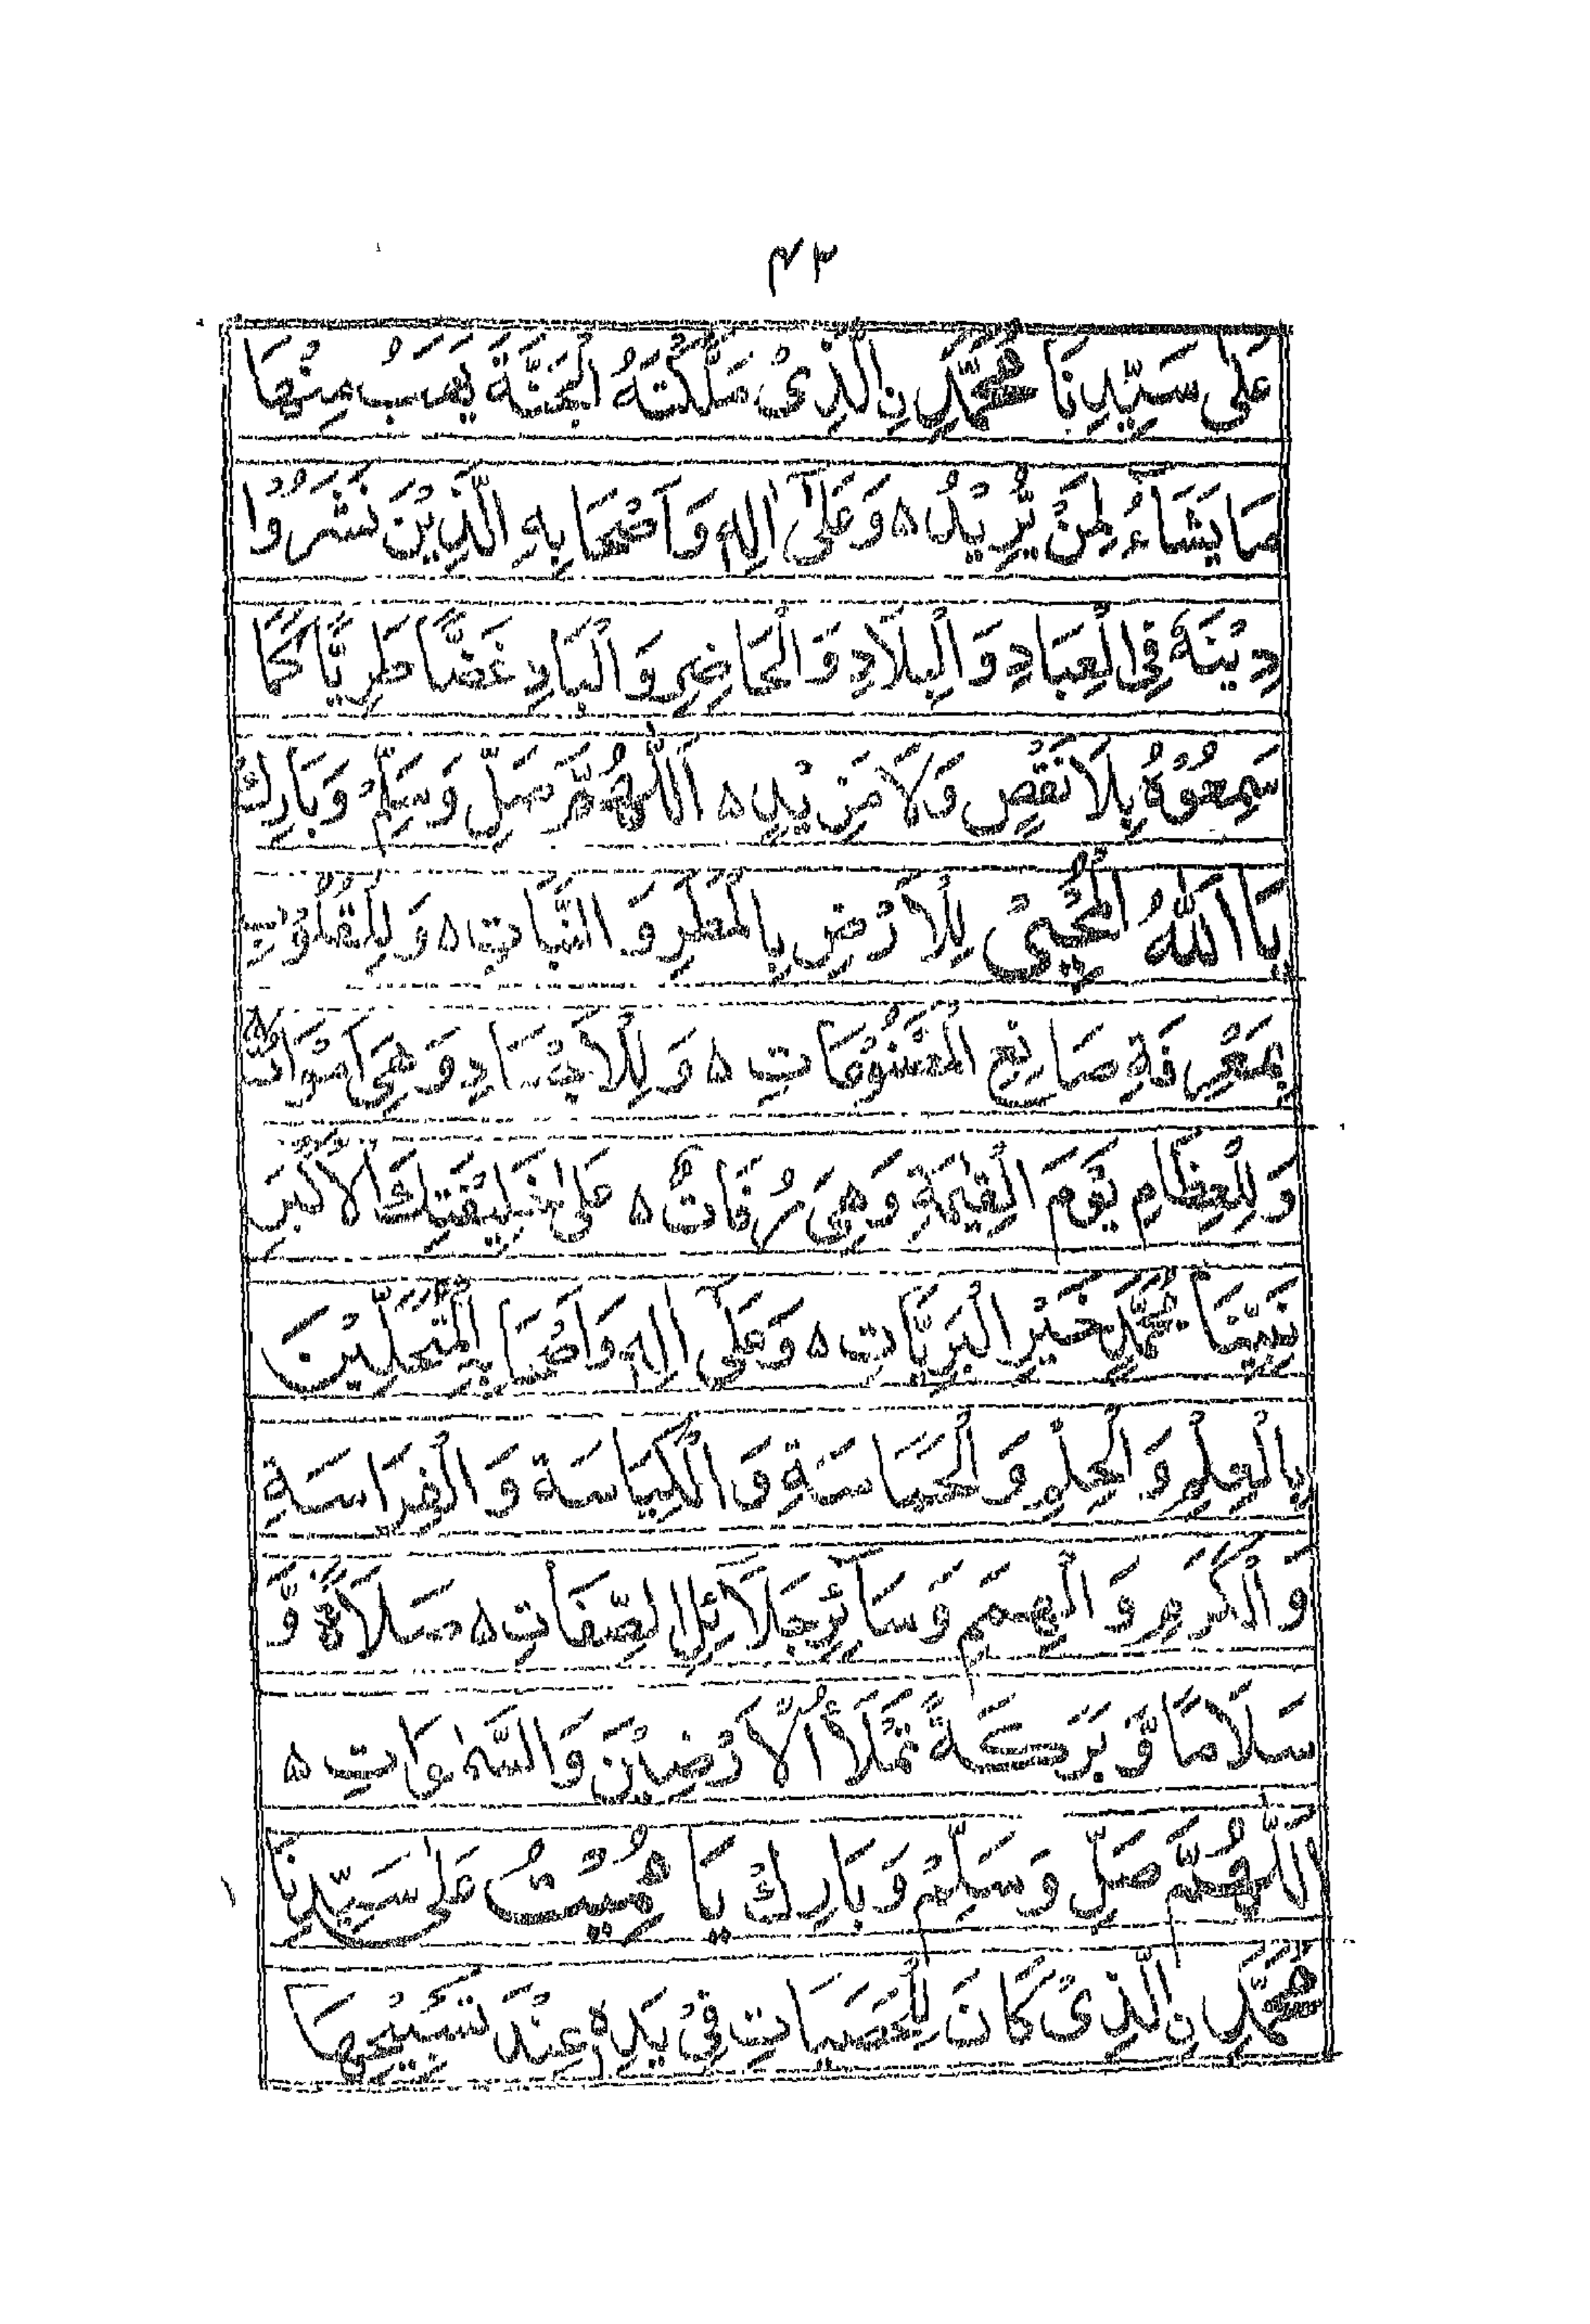 ٤٣
عَلٰى سَيِّدِنَا مُحَمَّدِ نِ الَّذِىْ مَلَّكْتَهُ الْجَنَّةَ يَهَبُ مِنْهَا
مَا يَشَآءُ لِمَنْ يُّرِيْدُ ۵ وَعَلٰىٓ اٰلِهٖ وَاَصْحَابِهِ الَّذِيْنَ نَشَرُوْا
دِيْنَهٗ فِى الْعِبَادِ وَالْبِلَادِ وَالْحَاضِرِ وَالْبَادِ غَضًّا طَرِيًّا كَمَا
سَمِعُوْهُ بِلَا نَقْصٍ وَّلَا مَزِيْدٍ ۵ اَللّٰهُمَّ صَلِّ وَسَلِّمْ وَبَارِكْ
يَا اَللّٰهُ الْمُحْيِىْ لِلْاَرْضِ بِالْمَطَرِ وَالنَّبَاتِ ۵ وَلِلْقُلُوْبِ
بِمَعْرِفَةِ صَانِعِ الْمَصْنُوْعَاتِ ۵ وَلِلْاَجْسَادِ وَهِىَ اَمْوَاتٌ ۵
وَلِلْعِظَامِ يَوْمَ الْقِيٰمَةِ وَهِىَ رُفَاتٌ ۵ عَلٰى خَلِيْفَتِكَ الْاَكْبَرِ
نَبِيِّنَا مُحَمَّدٍ خَيْرِ الْبَرِيَّاتِ ۵ وَعَلٰىٓ اٰلِهٖ وَاَصْحَابِهِ الْمُتَحَلِّيْنَ
بِالْعِلْمِ وَالْحِلْمِ وَالْحَمَاسَةِ وَالْكِيَاسَةِ وَالْفِرَاسَةِ
وَالْكَرَمِ وَالْهِمَمِ وَسَآئِرِ جَلَآئِلِ الصِّفَاتِ ۵ صَلَاةً وَّ
سَلَامًا وَّبَرَكَةً تَمْلَأُ الْاَرْضِيْنَ وَالسَّمٰوَاتِ ۵
اَللّٰهُمَّ صَلِّ وَسَلِّمْ وَبَارِكْ يَا مُمِيْتُ عَلٰى سَيِّدِنَا
مُحَمَّدِ نِ الَّذِىْ كَانَ لِلْحَصَيَاتِ فِىْ يَدِهٖ عِنْدَ تَسْبِيْحِهَا